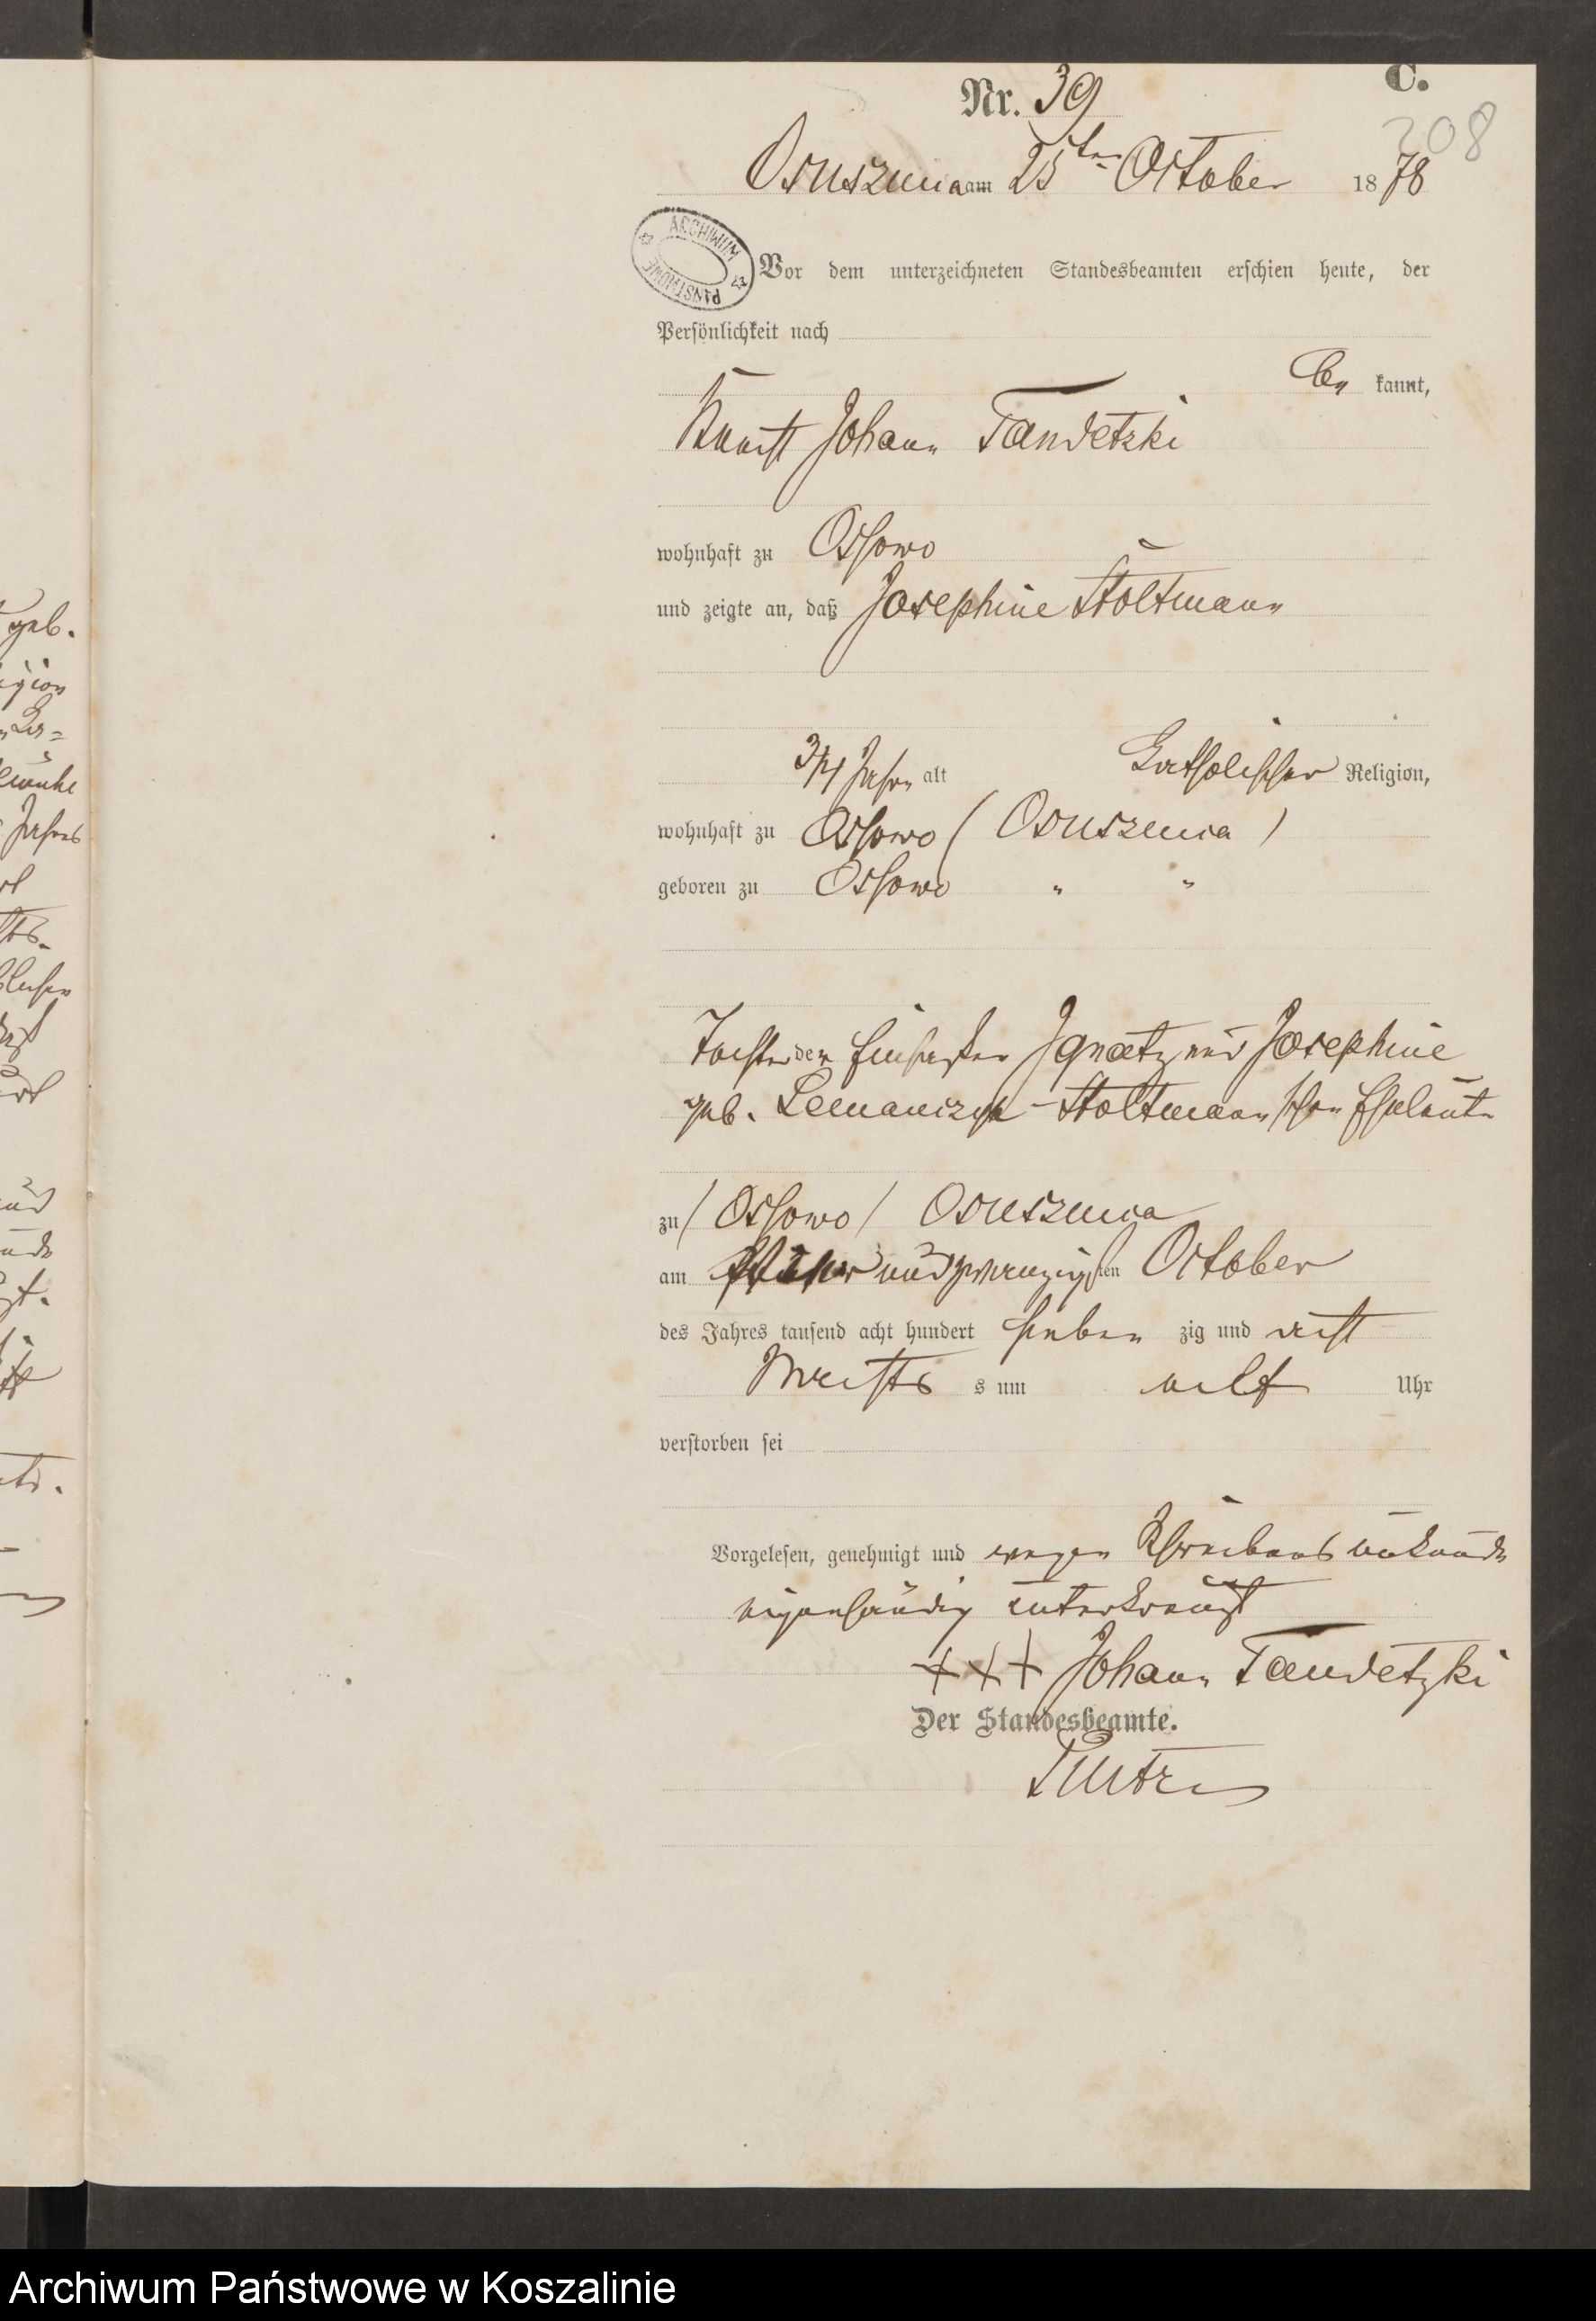 C.
Nr. 39
208
Osusznica am 25ten October 1878
ARCHIWUM PAŃSTWOWE
Vor dem unterzeichneten Standesbeamten erschien heute, der
Persönlichkeit nach
be kannt,
Knecht Johann Tandetzki
wohnhaft zu Ossowo
und zeigte an, daß Josephine Stoltmann
3/4 Jahr alt Katholischer Religion,
wohnhaft zu Ossowo (Osusznica)
geboren zu Ossowo " "
Tochter der Einsaßen Ignatz und Josephine
geb. Lemanczyk-Stoltmann'schen Eheleute
zu (Ossowo) Osusznica
am und zwanzigsten October
des Jahres tausend acht hundert sieben zig und acht
Nachts s um elf Uhr
verstorben sei
Vorgelesen, genehmigt und wegen Schreibensunkunde
eigenhändig unterkreuzt
+++ Johann Tandetzki
Der Standesbeamte.
Archiwum Państwowe w Koszalinie